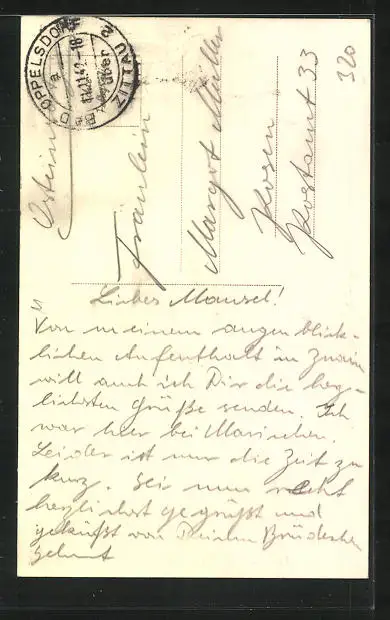 OPPELSDORF
über ZITTAU 2
11.11.42.-18
320
Fräulein
Margot Müller
Posen
Postamt 33
Liebes Mausel!
Von meinem augenblick-
lichen Aufenthalt in Znaim
will auch ich Dir die herz-
lichsten Grüße senden. Ich
war hier bei Mariechen.
Leider ist nur die Zeit zu
kurz. Sei nun recht
herzlichst gegrüßt und
geküßt von Deinem Brüderchen